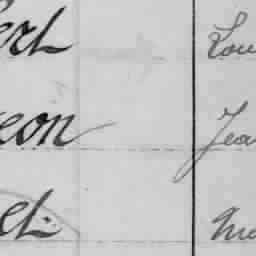 ert Lou
eon Jea
et Ma